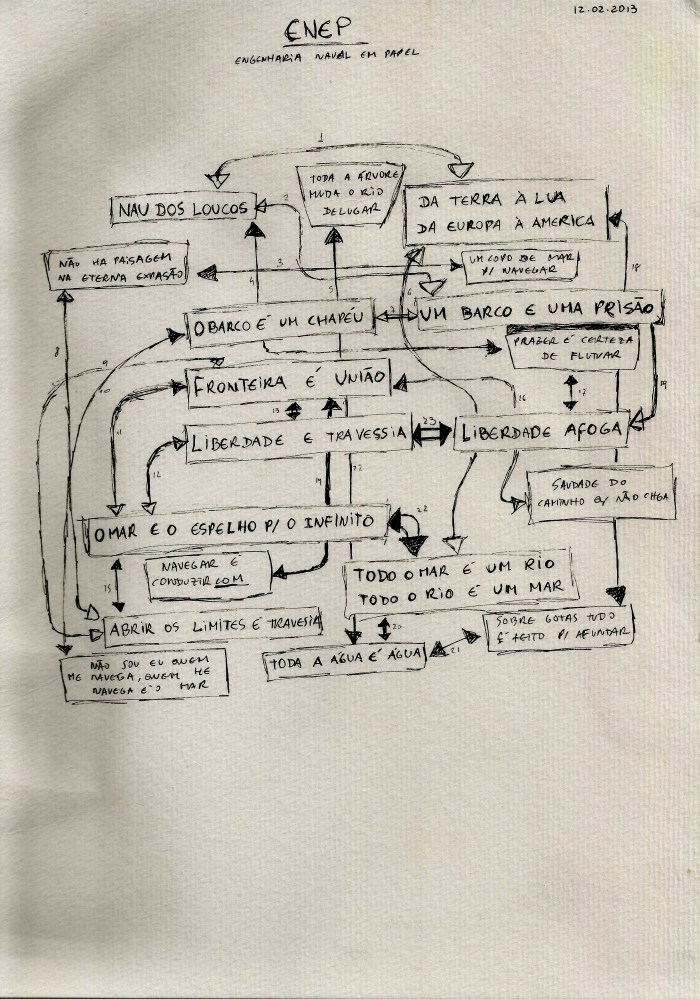 12.02.2013
ENEP
ENGENHARIA NAVAL EM PAPEL
1
TODA A ÁRVORE
MUDA O RIO
DE LUGAR
2
NAU DOS LOUCOS
DA TERRA À LUA
DA EUROPA À AMERICA
NÃO HA PAISAGEM
NA ETERNA EXPASÃO
3
UM COPO DE MAR
P/ NAVEGAR
18
4
5
6
O BARCO É UM CHAPÉU
7
UM BARCO E UMA PRISÃO
PRAZER É CERTEZA
DE FLUTUAR
8
9
10
FRONTEIRA É UNIÃO
16
17
19
11
13
LIBERDADE E TRAVESSIA
23
LIBERDADE AFOGA
12
14
SAUDADE DO
CAMINHO Q/ NÃO CHGA
O MAR E O ESPELHO P/ O INFINITO
22
15
NAVEGAR É
CONDUZIR COM
TODO O MAR É UM RIO
TODO O RIO É UM MAR
ABRIR OS LIMITES É TRAVESIA
20
SOBRE GOTAS TUDO
É FEITO P/ AFUNDAR
NÃO SOU EU QUEM
ME NAVEGA, QUEM ME
NAVEGA É O MAR
TODA A ÁGUA É ÁGUA
21